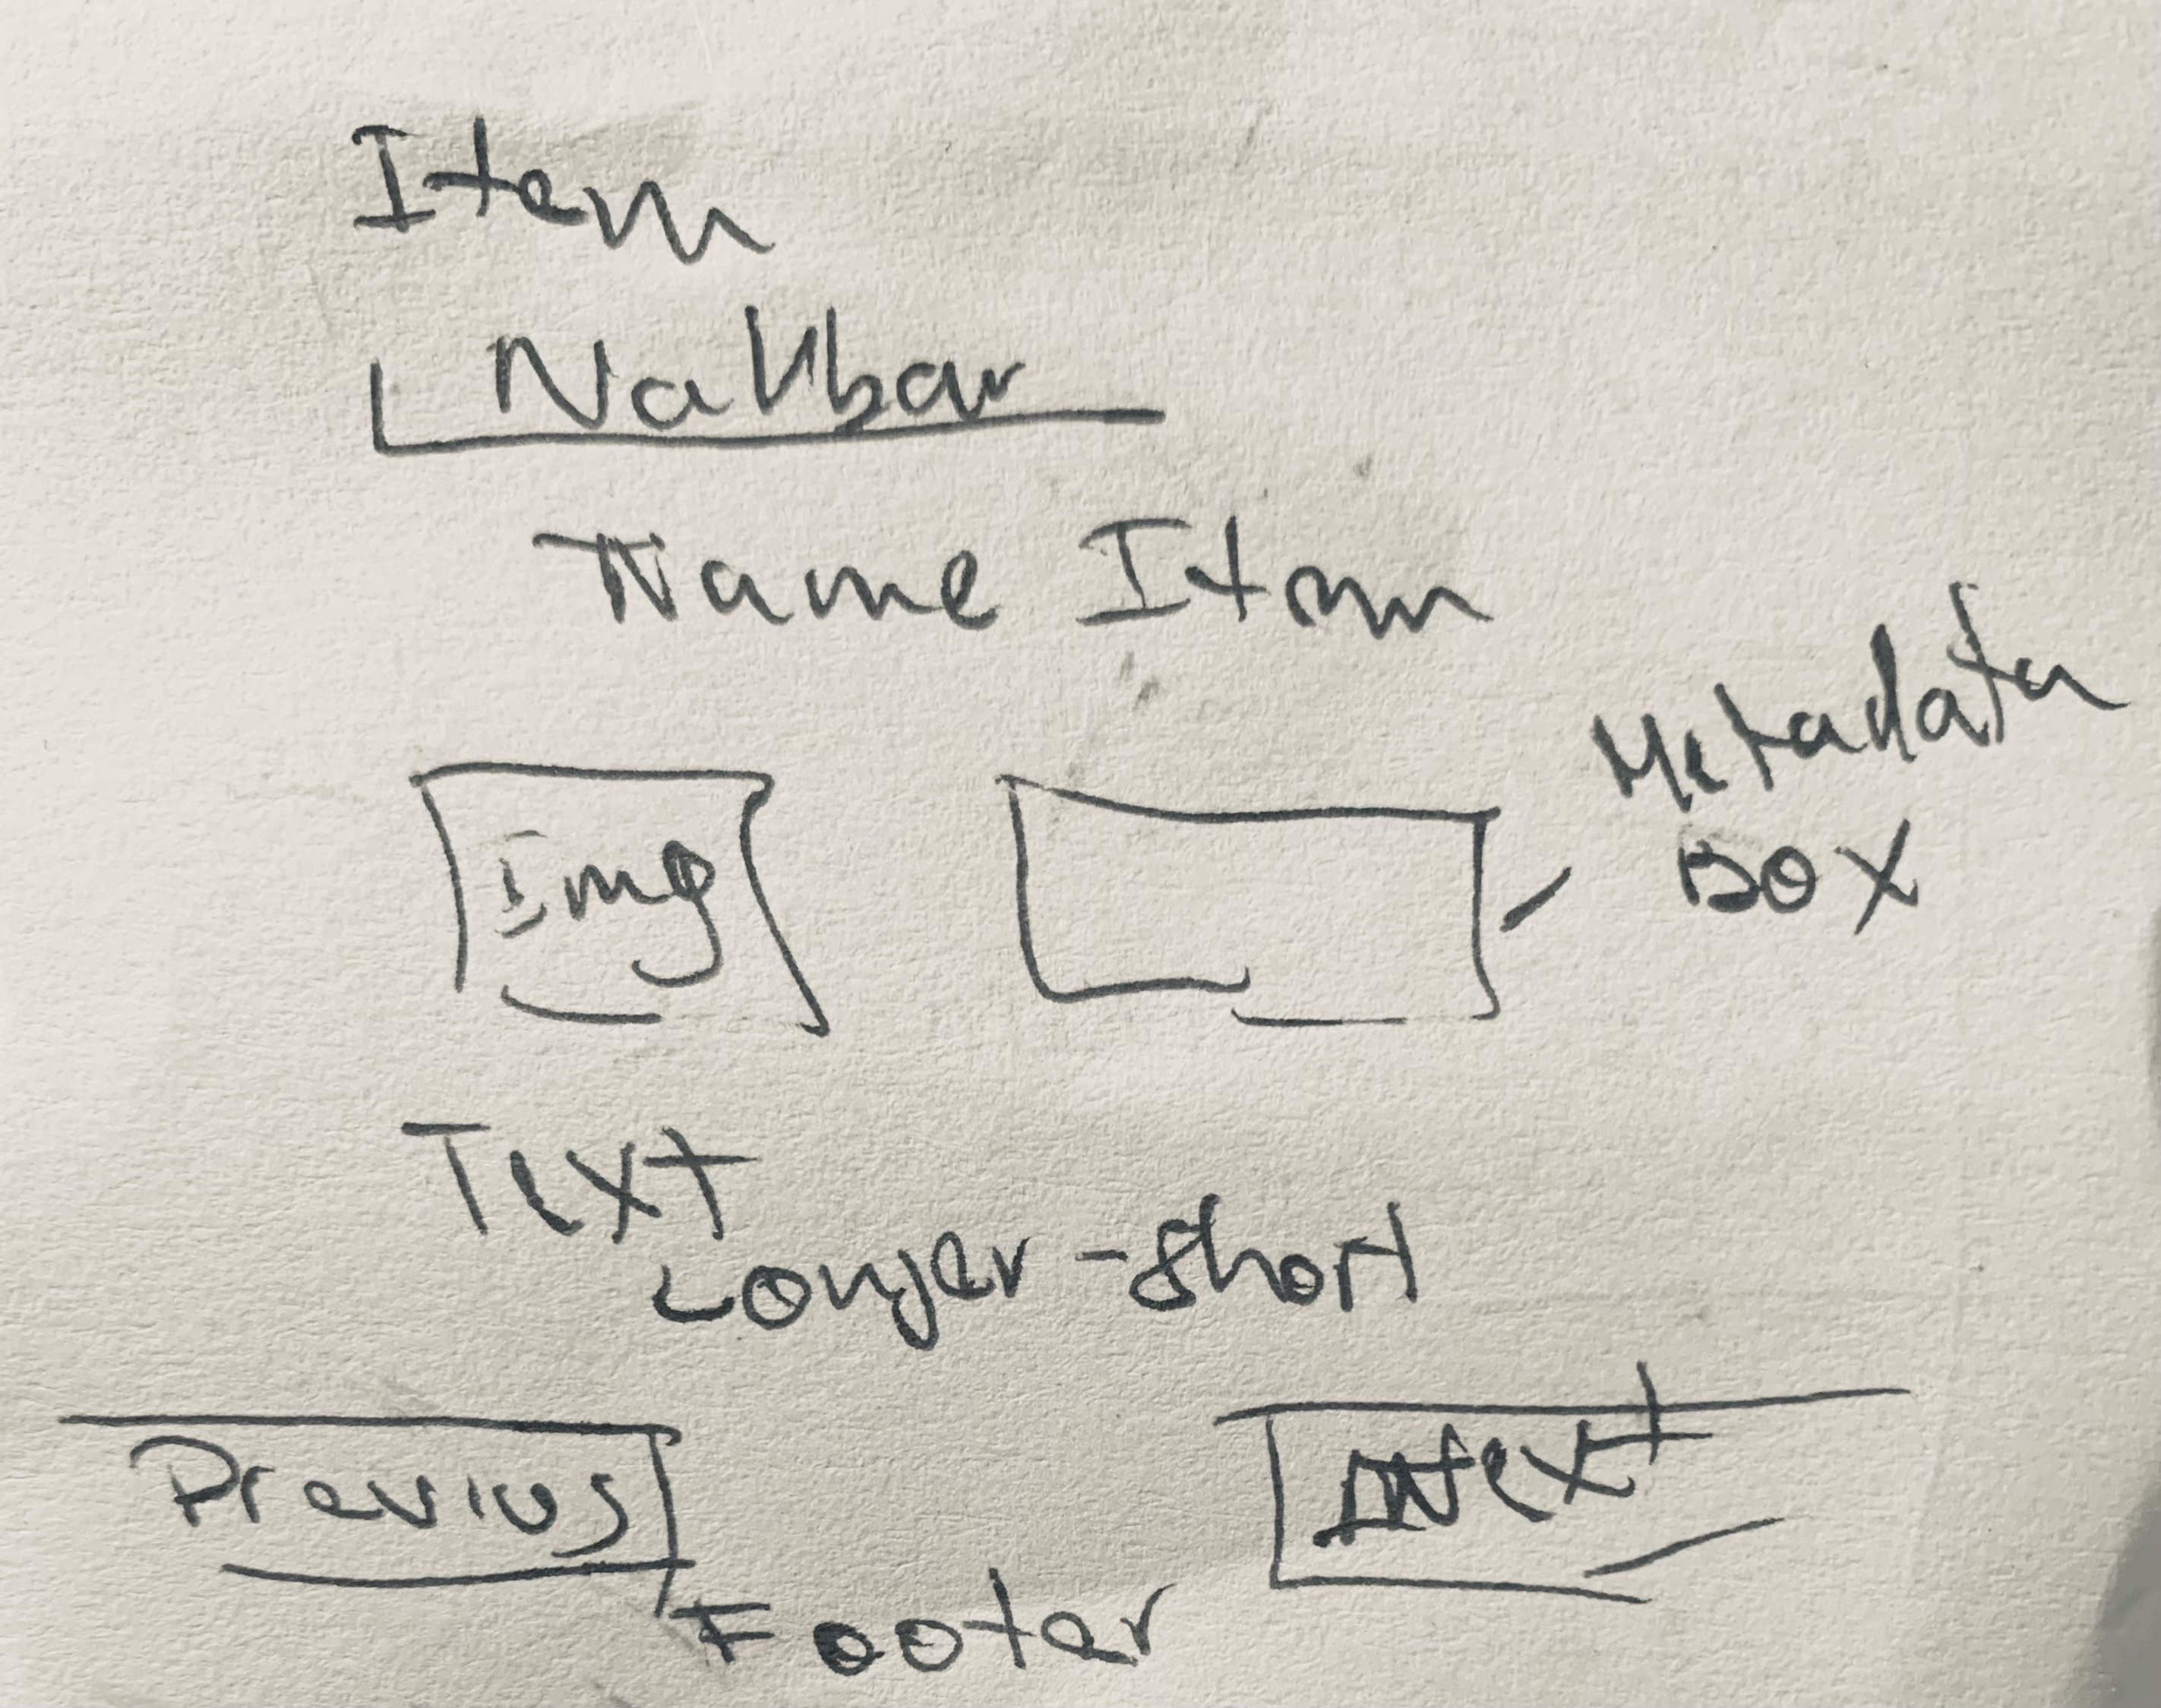 Item
Navbar
Name Item
Metadata
Box
Img
Text
Longer - Short
Previus
Next
Footer